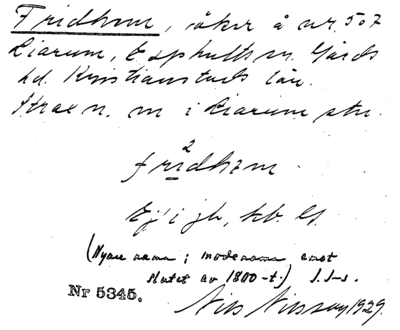 Fridhem, åker å nr. 507
Liarum, Esphults sn. Gärds
hd. Kristianstads län.
Strax n. m i Liarum stn.
2
fridhem
Ej i jb, kb. el.
(Nyare namn; modenamn emot
slutet av 1800-t.) J. J-s.
Nr 5345. Nils Nilsson 1929.